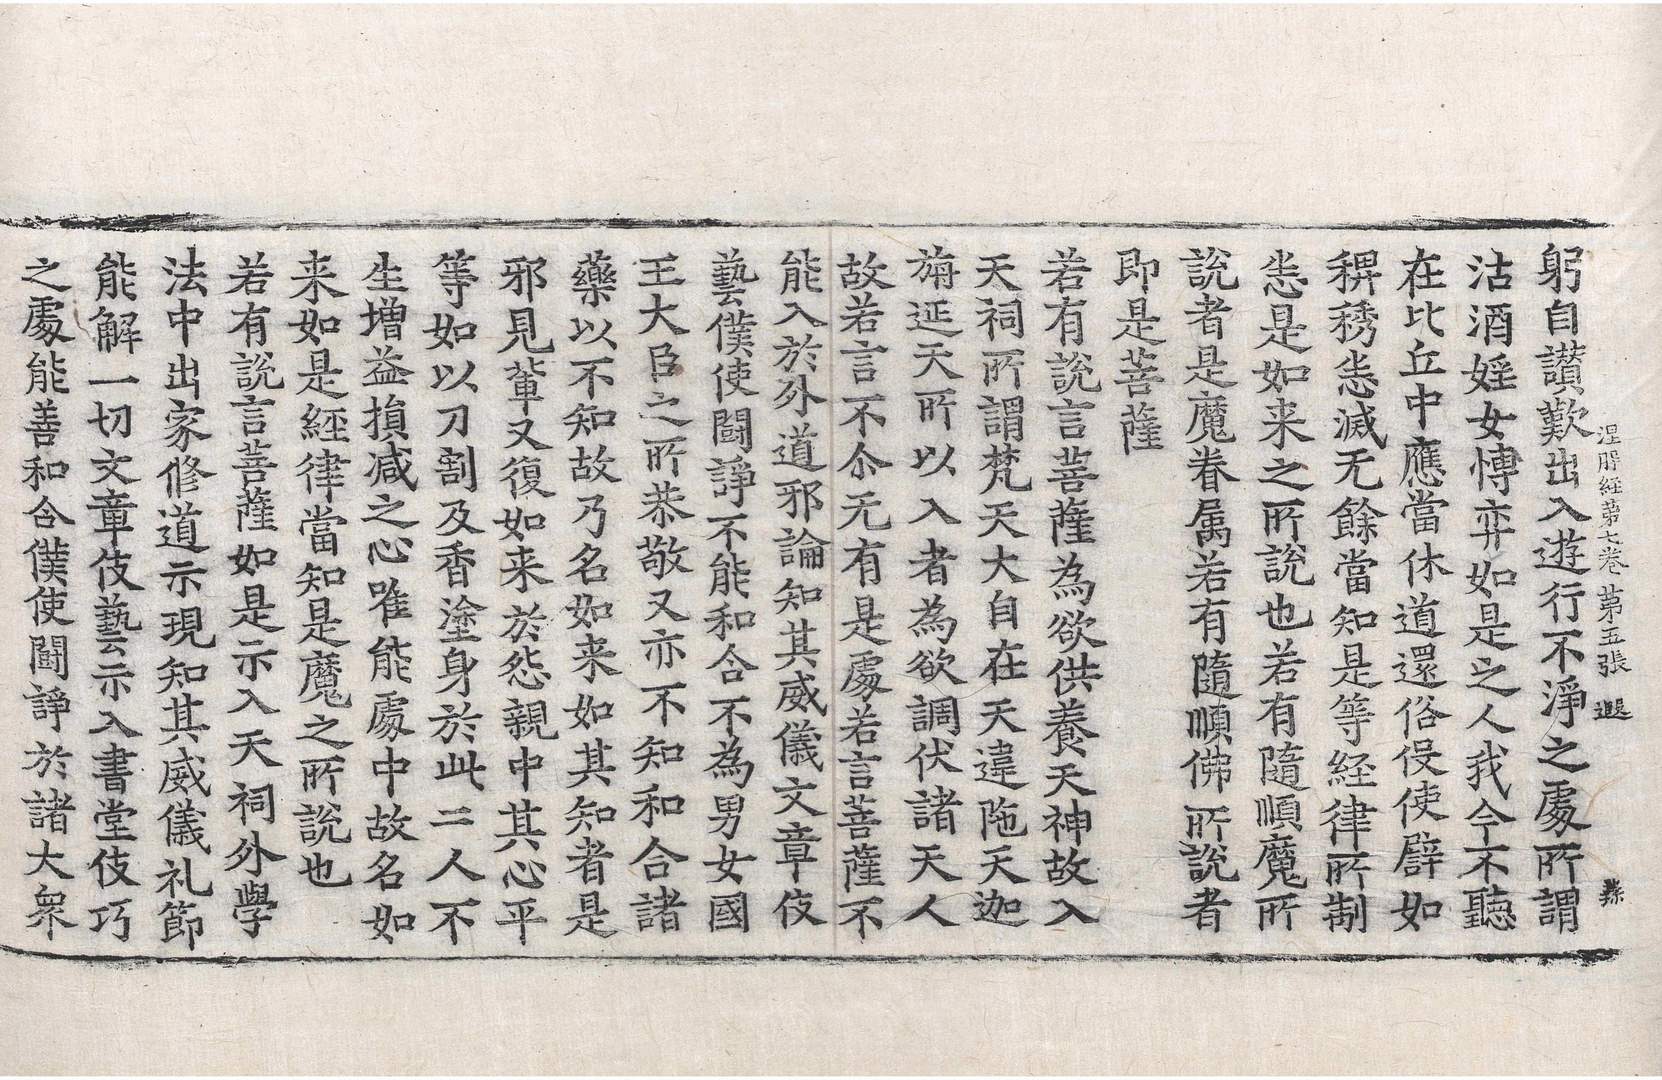 涅脵経苐七卷 苐五張 遐
躬自讃歎出入遊行不淨之䖏所謂
沽酒婬女愽弈如是之人我今不聽
在比丘中應當休道還俗伇使辟如
稗莠悉滅无餘當知是等経律所制
悉是如来之所說也若有隨順魔所
說者是魔眷属若有隨順佛所說者
即是菩薩
若有說言菩薩為欲供養天神故入
天祠所謂梵天大自在天違陁天迦
旃延天所以入者為欲調伏諸天人
故若言不尒无有是䖏若言菩薩不
能入於外道邪論知其威儀文章伎
藝僕使鬪諍不能和合不為男女國
王大臣之所恭敬又亦不知和合諸
藥以不知故乃名如来如其知者是
邪見輩又復如来於怨親中其心平
等如以刀割及香塗身於此二人不
生増益損减之心唯能䖏中故名如
来如是經律當知是魔之所說也
若有說言菩薩如是示入天祠外學
法中出家修道示現知其威儀礼節
能解一切文章伎藝示入書堂伎巧
之䖏能善和合僕使鬪諍於諸大衆